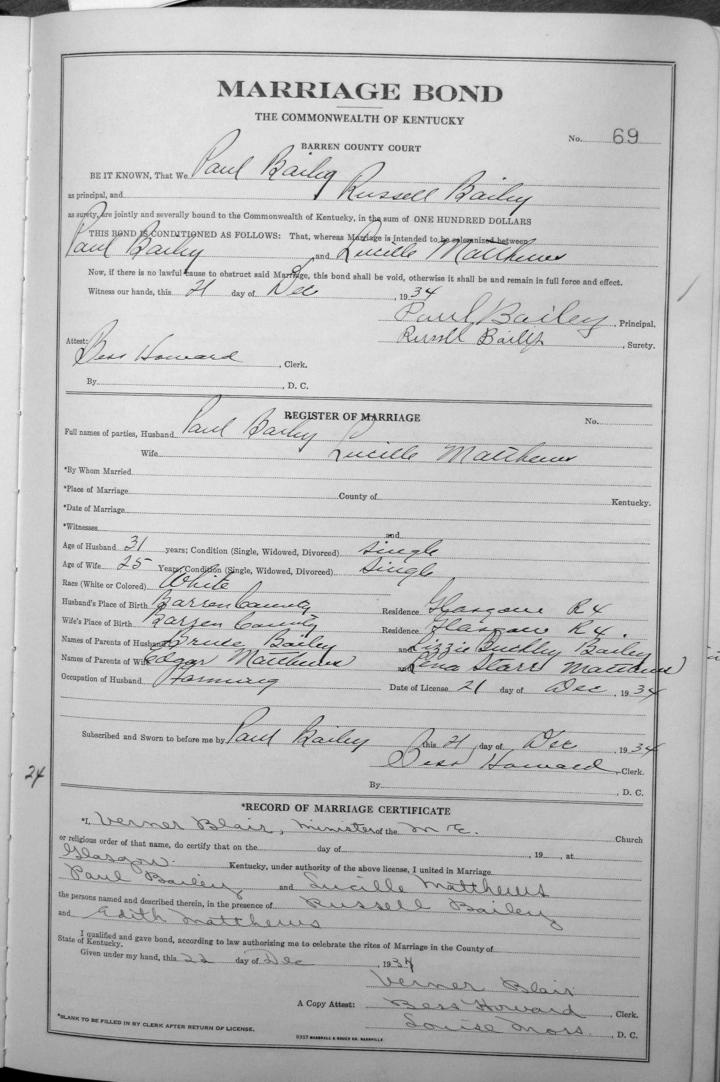 MARRIAGE BOND
THE COMMONWEALTH OF KENTUCKY
No. 69
BARREN COUNTY COURT
BE IT KNOWN, That We Paul Bailey
as principal, and Russell Bailey
as surety, are jointly and severally bound to the Commonwealth of Kentucky, in the sum of ONE HUNDRED DOLLARS
THIS BOND IS CONDITIONED AS FOLLOWS: That, whereas Marriage is intended to be solemnized between
Paul Bailey and Lucille Matthews
Now, if there is no lawful cause to obstruct said Marriage, this bond shall be void, otherwise it shall be and remain in full force and effect.
Witness our hands, this 21 day of Dec, 1934
Paul Bailey, Principal,
Russell Bailey, Surety.
Attest:
Bess Howard, Clerk.
By , D. C.
REGISTER OF MARRIAGE No.
Full names of parties, Husband Paul Bailey
Wife Lucille Matthews
*By Whom Married
*Place of Marriage County of Kentucky.
*Date of Marriage
*Witnesses and
Age of Husband 31 years; Condition (Single, Widowed, Divorced) Single
Age of Wife 25 Years; Condition (Single, Widowed, Divorced) Single
Race (White or Colored) White
Husband's Place of Birth Barren County Residence Glasgow R4
Wife's Place of Birth Barren County Residence Glasgow R4.
Names of Parents of Husband Bruce Bailey and Lizzie Buckley Bailey
Names of Parents of Wife Edgar Matthews and Lena Starr Matthews
Occupation of Husband Farming Date of License 21 day of Dec, 1934
Subscribed and Sworn to before me by Paul Bailey this 21 day of Dec, 1934
Bess Howard, Clerk.
24
By , D. C.
*RECORD OF MARRIAGE CERTIFICATE
*I, Verner Blair, minister of the M E. Church
or religious order of that name, do certify that on the day of , 19 , at
Glasgow. Kentucky, under authority of the above license, I united in Marriage
Paul Bailey and Lucille Matthews
the persons named and described therein, in the presence of Russell Bailey
and Edith Matthews
I qualified and gave bond, according to law authorizing me to celebrate the rites of Marriage in the County of
State of Kentucky.
Given under my hand, this 22 day of Dec, 1934
Verner Blair
A Copy Attest: Bess Howard, Clerk.
Louise Moss, D. C.
*BLANK TO BE FILLED IN BY CLERK AFTER RETURN OF LICENSE.
MARSHALL & BRUCE CO. NASHVILLE